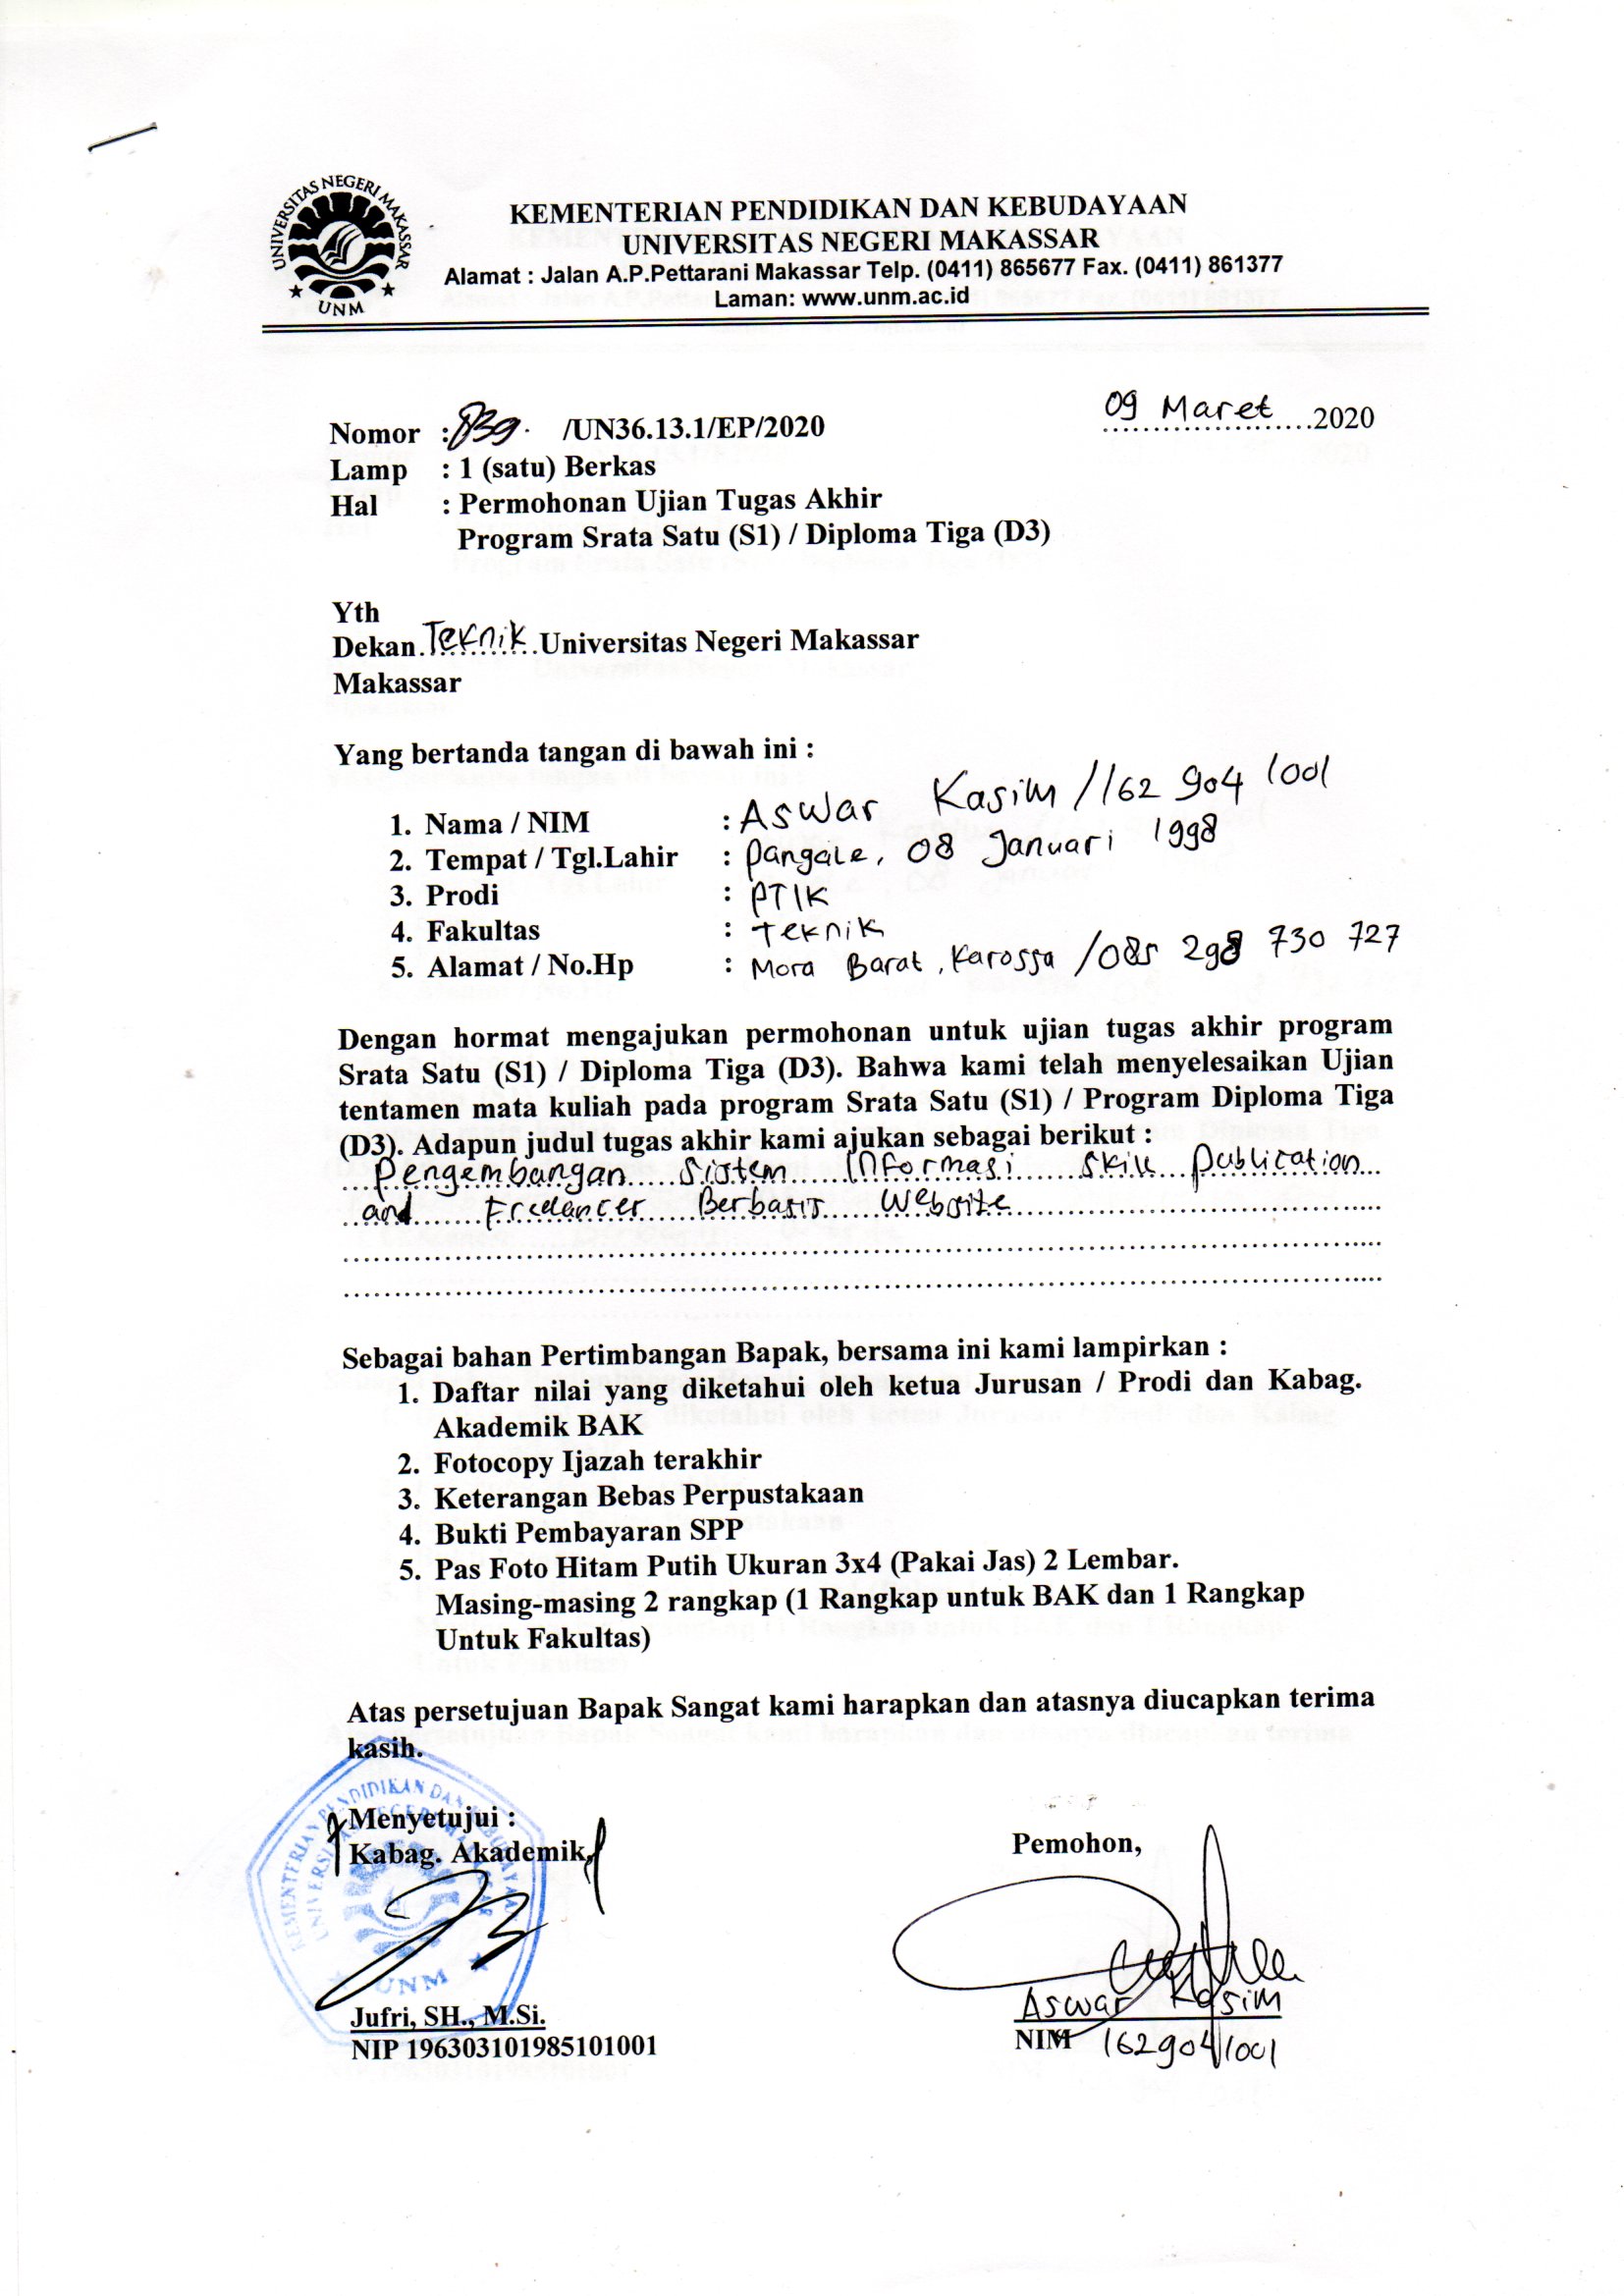 UNIVERSITAS NEGERI MAKASSAR
UNM
KEMENTERIAN PENDIDIKAN DAN KEBUDAYAAN
UNIVERSITAS NEGERI MAKASSAR
Alamat : Jalan A.P.Pettarani Makassar Telp. (0411) 865677 Fax. (0411) 861377
Laman: www.unm.ac.id
09 Maret 2020
Nomor : 839. /UN36.13.1/EP/2020
Lamp : 1 (satu) Berkas
Hal : Permohonan Ujian Tugas Akhir
Program Srata Satu (S1) / Diploma Tiga (D3)
Yth
Dekan Teknik Universitas Negeri Makassar
Makassar
Yang bertanda tangan di bawah ini :
1. Nama / NIM : Aswar Kasim / 162 904 1001
2. Tempat / Tgl.Lahir : Pangale, 08 Januari 1998
3. Prodi : PTIK
4. Fakultas : Teknik
5. Alamat / No.Hp : Mora Barat, Karossa / 085 298 730 727
Dengan hormat mengajukan permohonan untuk ujian tugas akhir program
Srata Satu (S1) / Diploma Tiga (D3). Bahwa kami telah menyelesaikan Ujian
tentamen mata kuliah pada program Srata Satu (S1) / Program Diploma Tiga
(D3). Adapun judul tugas akhir kami ajukan sebagai berikut :
Pengembangan Sistem Informasi Skill Publication
and Freelancer Berbasis Website
Sebagai bahan Pertimbangan Bapak, bersama ini kami lampirkan :
1. Daftar nilai yang diketahui oleh ketua Jurusan / Prodi dan Kabag.
Akademik BAK
2. Fotocopy Ijazah terakhir
3. Keterangan Bebas Perpustakaan
4. Bukti Pembayaran SPP
5. Pas Foto Hitam Putih Ukuran 3x4 (Pakai Jas) 2 Lembar.
Masing-masing 2 rangkap (1 Rangkap untuk BAK dan 1 Rangkap
Untuk Fakultas)
Atas persetujuan Bapak Sangat kami harapkan dan atasnya diucapkan terima
kasih.
Menyetujui :
Kabag. Akademik,
KEMENTERIAN PENDIDIKAN DAN KEBUDAYAAN
UNIVERSITAS NEGERI MAKASSAR
UNM
Jufri, SH., M.Si.
NIP 196303101985101001
Pemohon,
Aswar Kasim
NIM 1629041001